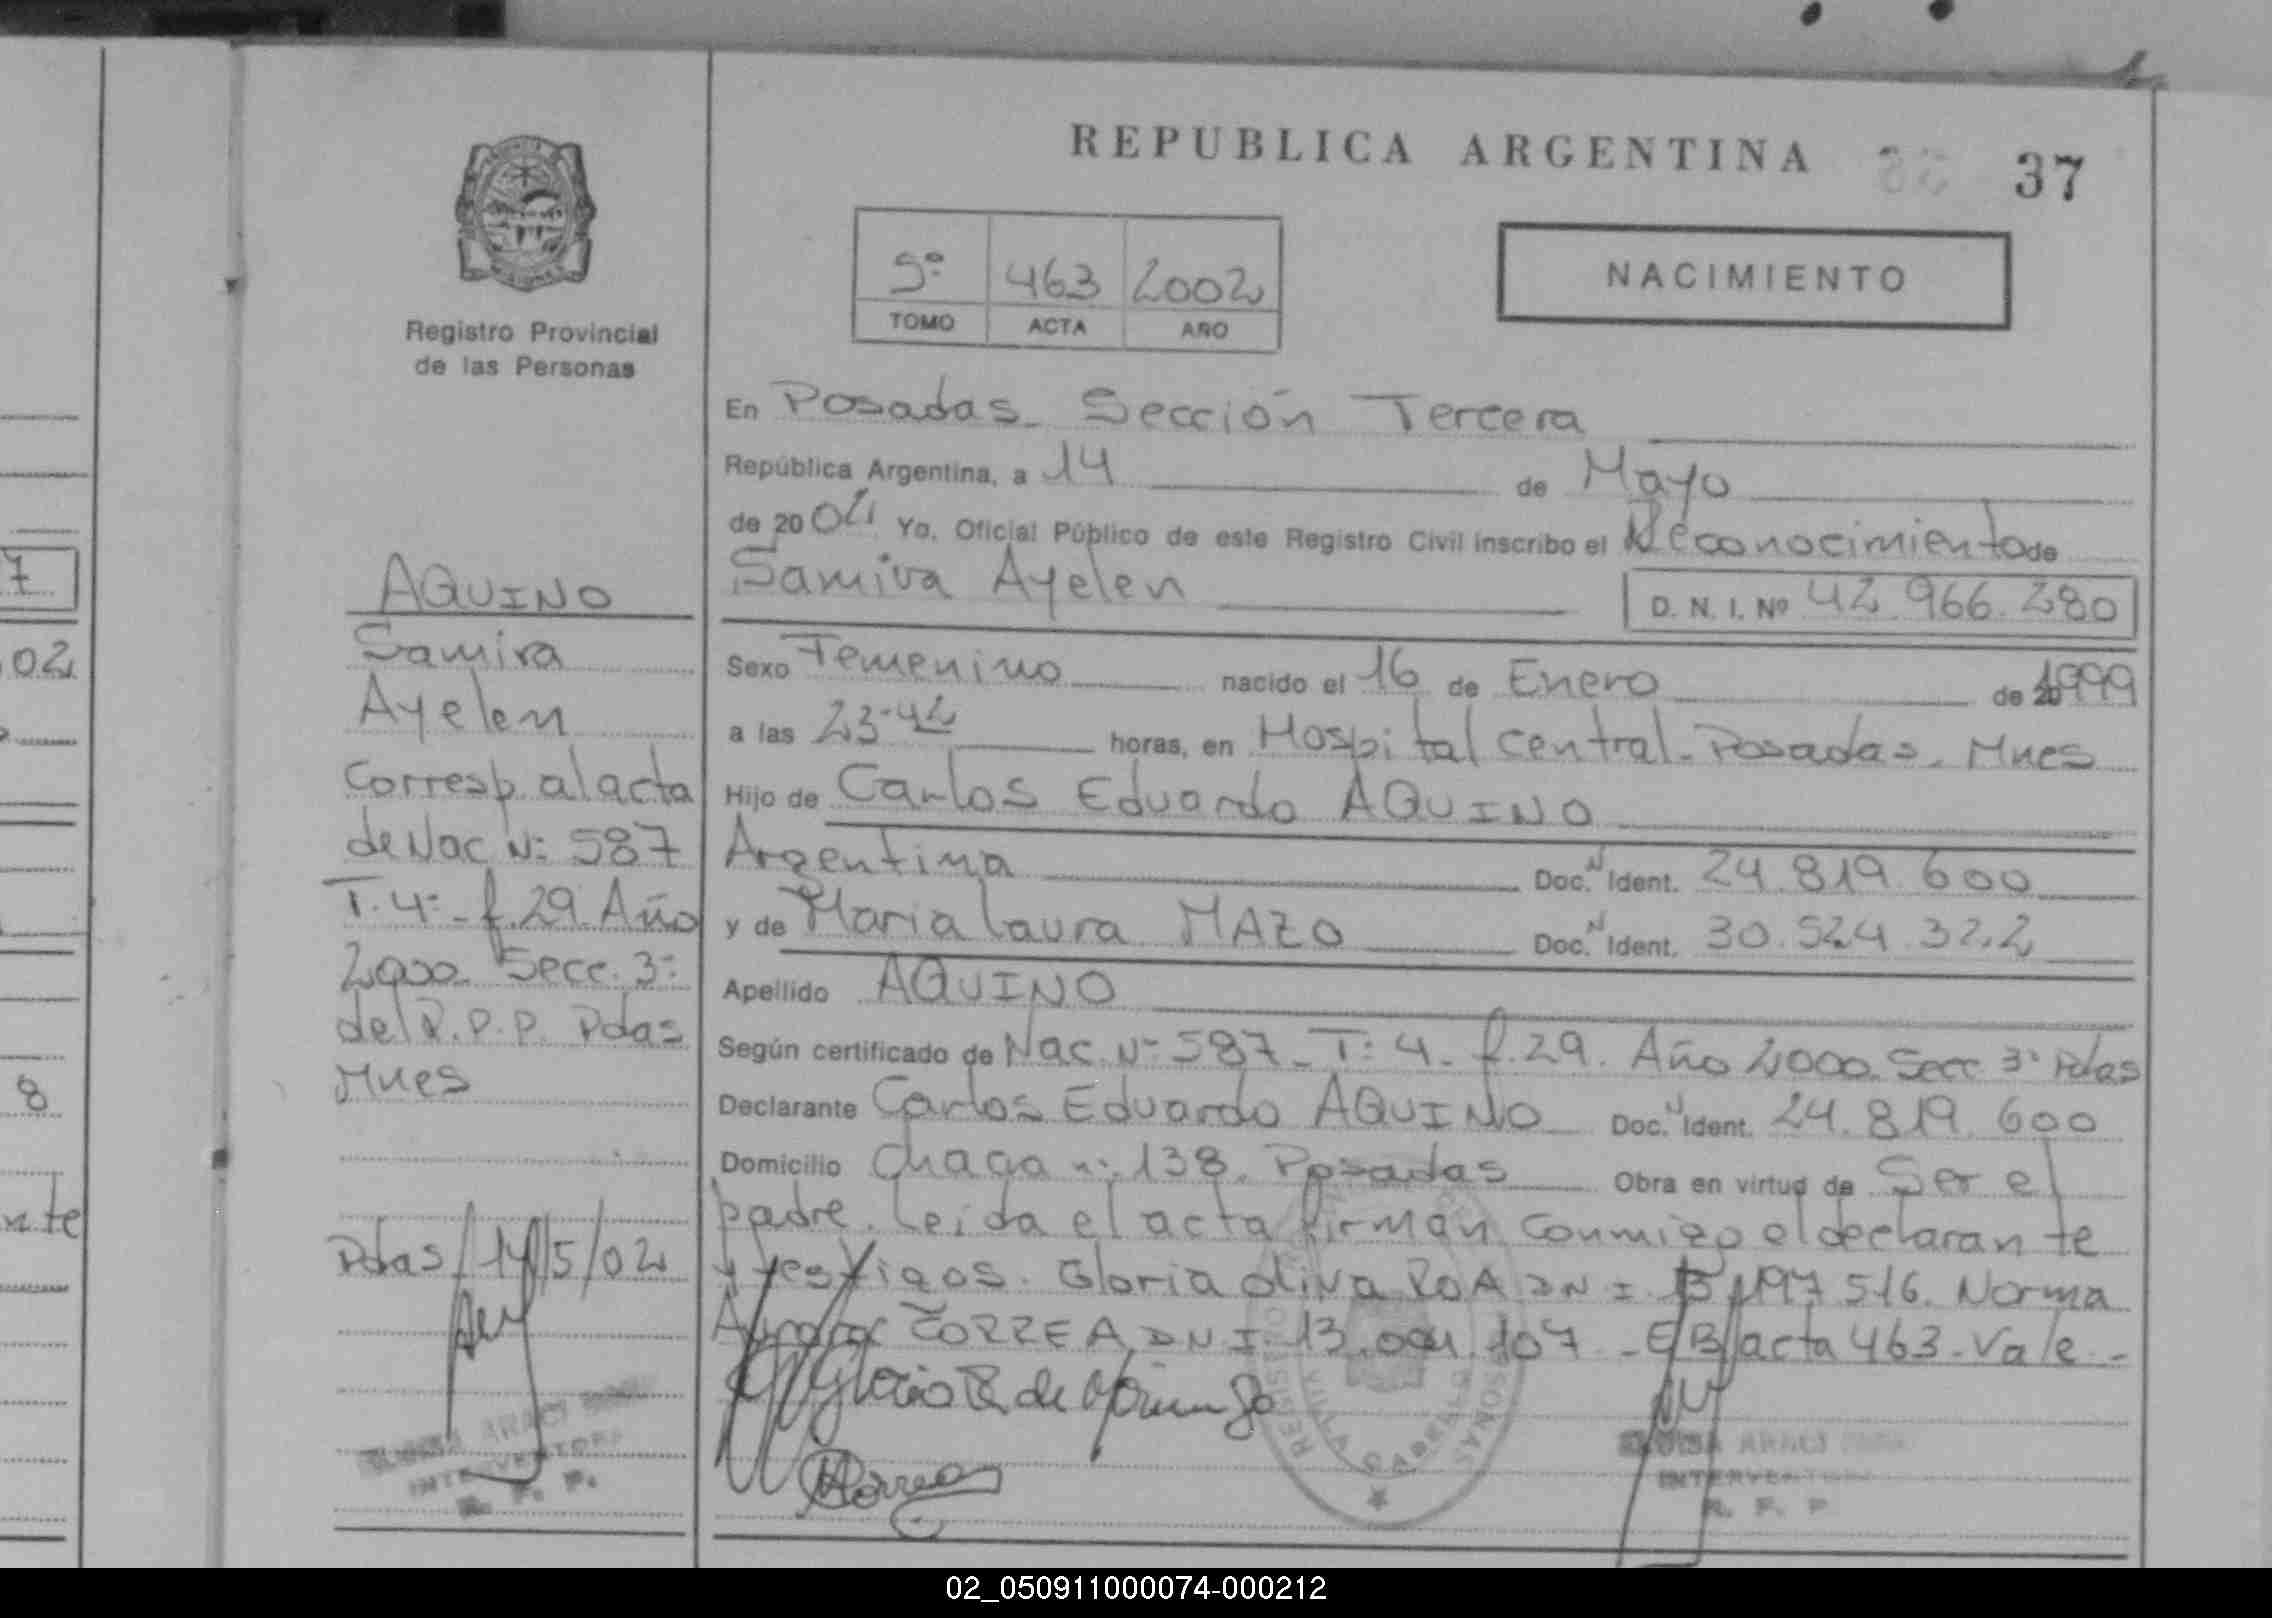 REPUBLICA ARGENTINA
37
Registro Provincial
de las Personas
5º 463 2002
TOMO ACTA AÑO
NACIMIENTO
En Posadas. Sección Tercera
República Argentina, a 14 de Mayo
de 20 02 Yo, Oficial Público de este Registro Civil inscribo el Reconocimiento de
Samira Ayelen
D. N. I. Nº 42.966.280
Sexo Femenino nacido el 16 de Enero de 1999
a las 23-42 horas, en Hospital Central. Posadas. Mnes
Hijo de Carlos Eduardo AQUINO
Argentina Doc. N Ident. 24.819.600
y de Maria Laura MAZO Doc. N Ident. 30.524.322
Apellido AQUINO
Según certificado de Nac. Nº 587. T: 4. f. 29. Año 2000. Secc 3ª Pdas
Declarante Carlos Eduardo AQUINO Doc. N Ident. 24.819.600
Domicilio Chaga nº 138. Posadas Obra en virtud de Ser el
padre. Leida el acta firman conmigo el declarante
y testigos. Gloria Oliva ROA DNI 197 516. Norma
CORREA DNI. 13. 107 - EB/acta 463. Vale -
AQUINO
Samira
Ayelen
Corresp. al acta
de Nac Nº 587
T. 4º - f. 29. Año
2000. Secc. 3ª
del R.P.P. Pdas
Mnes
Pdas/14/5/02
ARACI
INTERVENTORA
R. P. P.
ARACI
R. P. P
7
02
8
nte
02_050911000074-000212